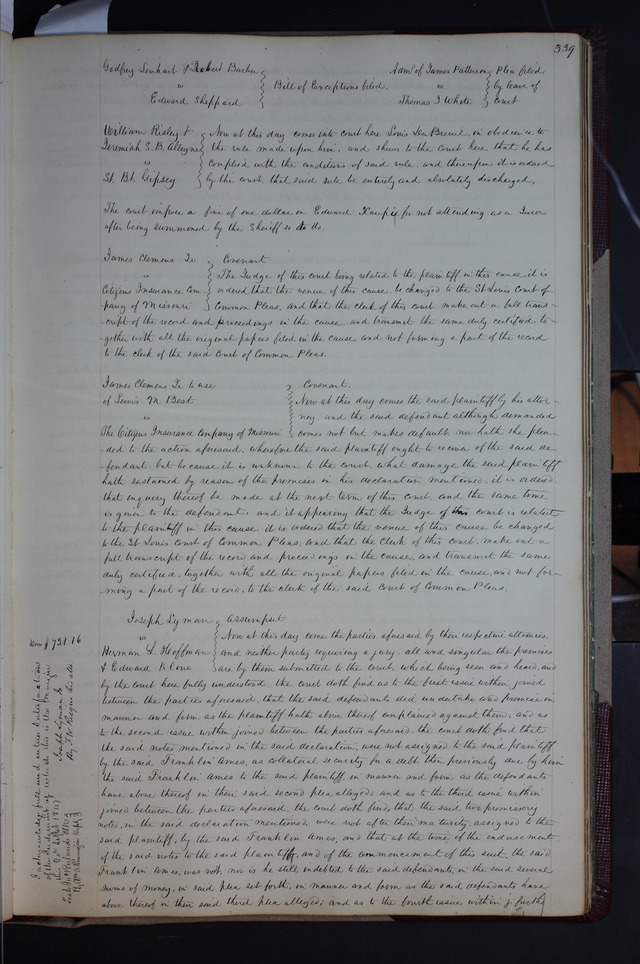 339
Godfrey Lenhart & Robert Barber
vs
Edward Sheppard
Bill of Exceptions filed.
Admr of James Patterson
vs
Thomas J White
Plea filed
by leave of
court
William Risley &
Jeremiah S. B. Alleyne
vs
St. Bt. Gipsey
Now at this day comes into court here Louis DuBreuil, in obedience to
the rule made upon him, and shews to the court here that he has
complied with the conditions of said rule, and thereupon it is ordered
by the court that said rule be entirely and absolutely discharged.
The court impose a fine of one dollar on Edward for not attending as a Juror
after being summoned by the Sheriff so to do.
James Clemens Jr
vs
Citizens Insurance Com
pany of Missouri
Covenant
The Judge of this court being related to the plaintiff in this cause it is
ordered that the venue of this cause, be changed to the St Louis Court of
Common Pleas, and that the clerk of this court make out a full trans-
-cript of the record and proceedings in the cause and transmit the same duly certified, to-
-gether with all the original papers filed in the cause and not forming a part of the record
to the clerk of the said Court of Common Pleas.
James Clemens Jr to use
of Lewis M. Best
vs
The Citizens Insurance Company of Missouri
Covenant.
Now at this day comes the said plaintiff by his attor-
ney, and the said defendant although demanded
comes not but makes default, nor hath she plea-
-ded to the action aforesaid, wherefore the said plaintiff ought to recover of the said de-
-fendant, but because it is unknown to the court, what damage the said plaintiff
hath sustained by reason of the premises in his declaration mentioned, it is ordered
that inquiry thereof be made at the next term of this court, and the same time
is given to the defendant, and it appearing that the Judge of this court is related
to the plaintiff in this cause, it is ordered that the venue of this cause be changed
to the St Louis Court of Common Pleas, and that the Clerk of this court, make out a
full transcript of the record and proceedings in the cause, and transmit the same
duly certified, together with all the original papers filed in the cause, and not for-
ming a part of the record, to the clerk of the said Court of Common Pleas.
Joseph Lyman
vs
Herman L. Hoffman
& Edward K
Assumpsit
Now at this day come the parties aforesaid by their respective attornies,
and neither party requiring a jury, all and singular the premises
are by them submitted to the court, which being seen and heard, and
by the court here fully understood, the court doth find as to the first issue within joined
between the parties aforesaid, that the said defendants did undertake and promise in
manner and form as the plaintiff hath above thereof complained against them, and as
to the second issue within joined between the parties aforesaid, the court doth find that
the said notes mentioned in the said declaration, were not assigned to the said plaintiff,
by the said Franklin Ames, as collateral security for a debt then previously due by him
the said Franklin Ames to the said plaintiff, in manner and form as the defendants
have above thereof in their said second plea alleged; and as to the third issue within
joined between the parties aforesaid, the court doth find, that the said two promissory
notes, in the said declaration mentioned, were not after their maturity, assigned to the
said plaintiff, by the said Franklin Ames, and that at the time of the endorsement
of the said notes to the said plaintiff, and of the commencement of this suit, the said
Franklin Ames, was not, nor is he still indebted to the said defendants, in the said several
sums of money, in said plea set forth, in manner and form as the said defendants have
above thereof in their said third plea alleged; and as to the fourth issue within j
$ 731.16
I acknowledge full and entire satisfaction
of the Judgment of which this is the margin
Joseph Lyman
By his atty